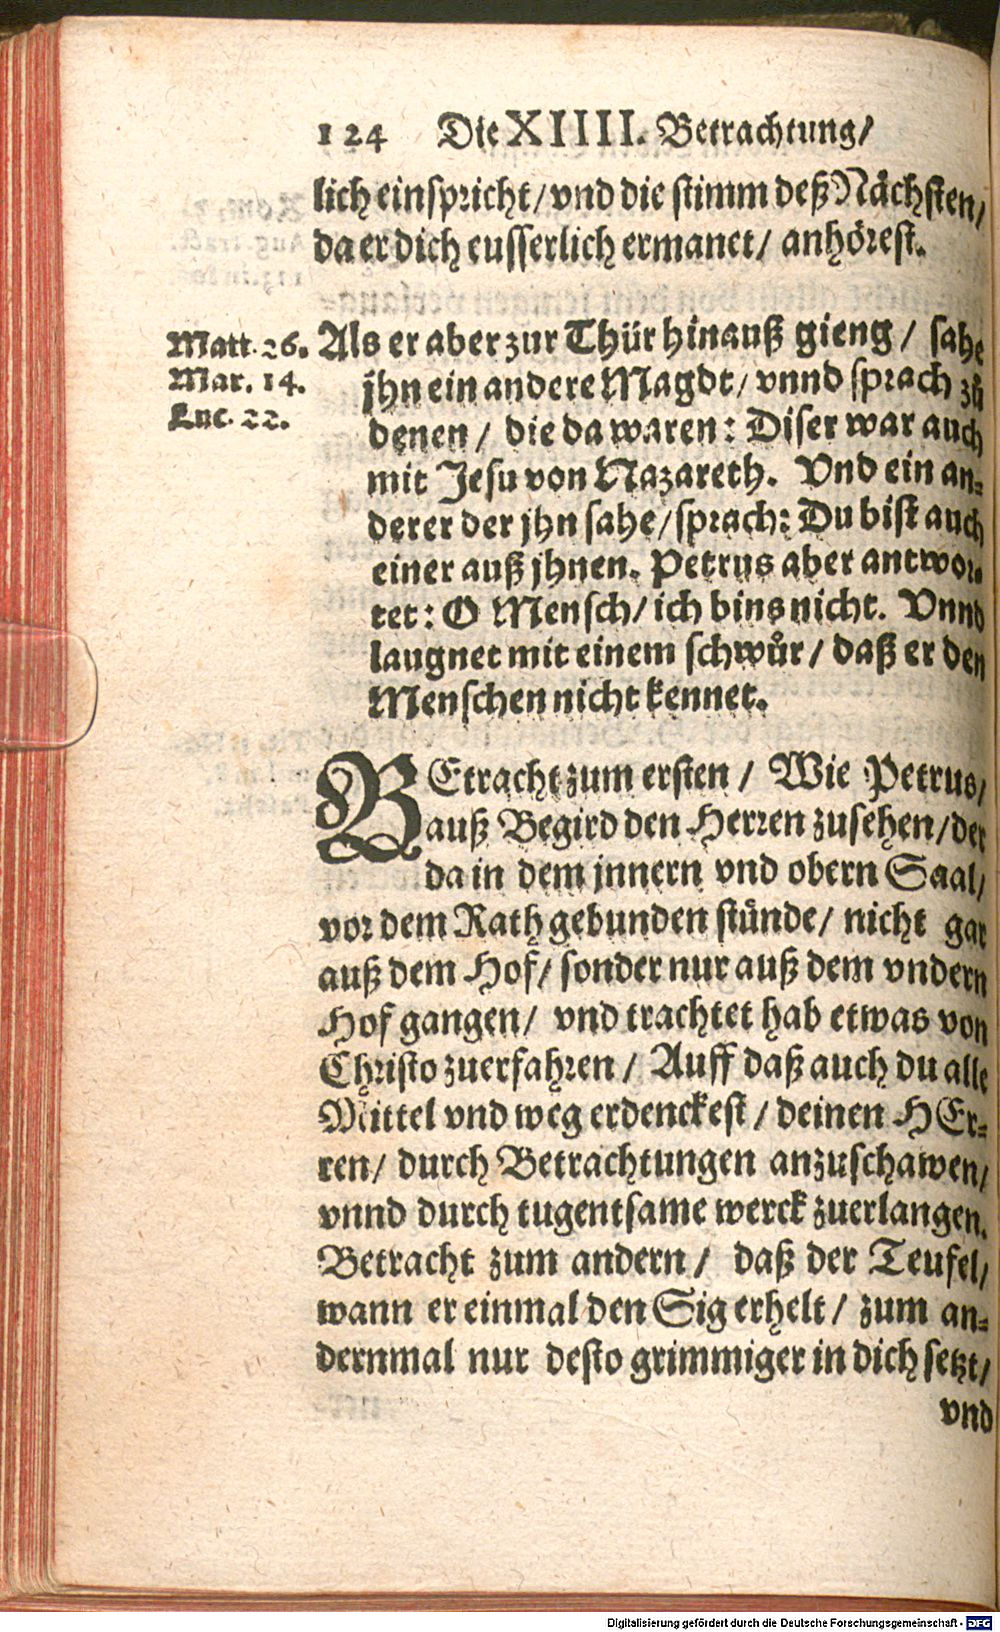 124 Die XIIII. Betrachtung/
lich einspricht/ vnd die stimm deß Nächsten/
da er dich eusserlich ermanet/ anhörest.
Matt. 26.
Mar. 14.
Luc. 22.
Als er aber zur Thür hinauß gieng / sahe
jhn ein andere Magdt/ vnnd sprach zů
denen / die da waren: Diser war auch
mit Jesu von Nazareth. Vnd ein an-
derer der jhn sahe/ sprach: Du bist auch
einer auß jhnen. Petrus aber antwor-
tet: O Mensch/ ich bins nicht. Vnnd
laugnet mit einem schwůr / daß er den
Menschen nicht kennet.
BEtracht zum ersten / Wie Petrus/
auß Begird den Herren zusehen/ der
da in dem jnnern vnd obern Saal/
vor dem Rath gebunden stůnde/ nicht gar
auß dem Hof/ sonder nur auß dem vndern
Hof gangen/ vnd trachtet hab etwas von
Christo zuerfahren / Auff daß auch du alle
Mittel vnd weg erdenckest / deinen HEr-
ren/ durch Betrachtungen anzuschawen/
vnnd durch tugentsame werck zuerlangen.
Betracht zum andern / daß der Teufel/
wann er einmal den Sig erhelt / zum an-
dernmal nur desto grimmiger in dich setzt/
vnd
Digitalisierung gefördert durch die Deutsche Forschungsgemeinschaft - DFG